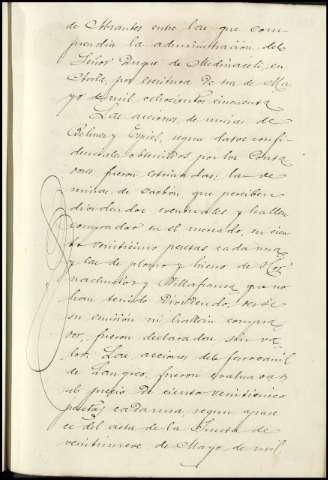 de Abrantes entre las que com
prendía la administración del
Señor Duque de Medinaceli, en
Ávila, por escritura de tres de Ma
yo de mil ochocientos cincuenta
Las acciones de minas de
Belmez y Espiel, segun datos confi
denciales obtenidos por los Conta
dores fueron estimadas; las de
minas de carbón, que perciben
dividendos eventuales y hallan
comprador en el mercado, en cien
to veinticinco pesetas cada una
y las de plomo y hierro de
y Villafranca que no
han tenido dividendo, desde
su emisión ni hallan compra
dor, fueron declaradas sin va
lor. Las acciones del ferrocarril
de Langreo, fueron evaluadas
al precio de ciento veinticinco
pesetas cada una, segun apare
ce del acta de la Junta de
veintinueve de Mayo de mil